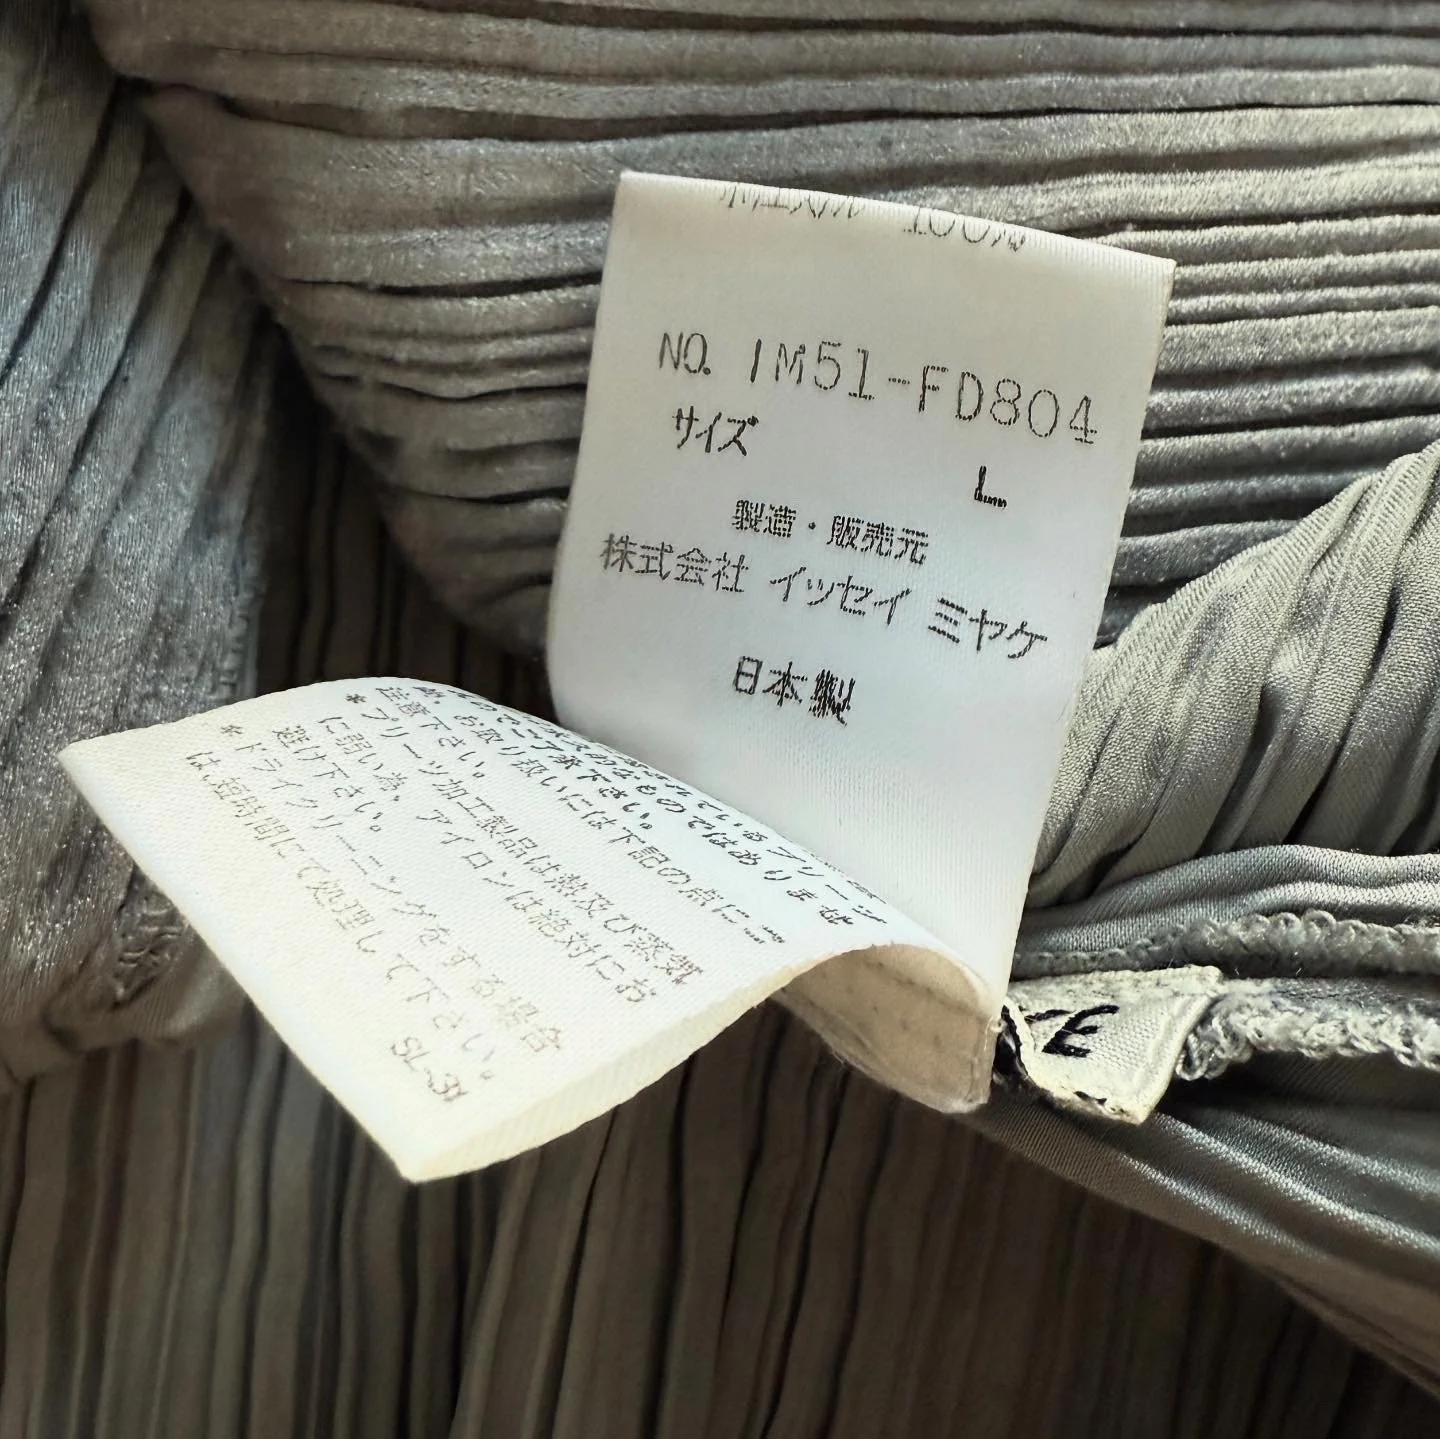 ポリエステル 100%
NO. IM51-FD804
サイズ
L
製造・販売元
株式会社 イッセイ ミヤケ
日本製
ものでは
ありませ
ご了承下さい。
尚、お取り扱いには下記の点に
注意下さい。
*プリーツ加工製品は熱及び蒸気
に弱い為、アイロンは絶対にお
避け下さい。
*ドライクリーニングをする場合
は、短時間にて処理して下さい。